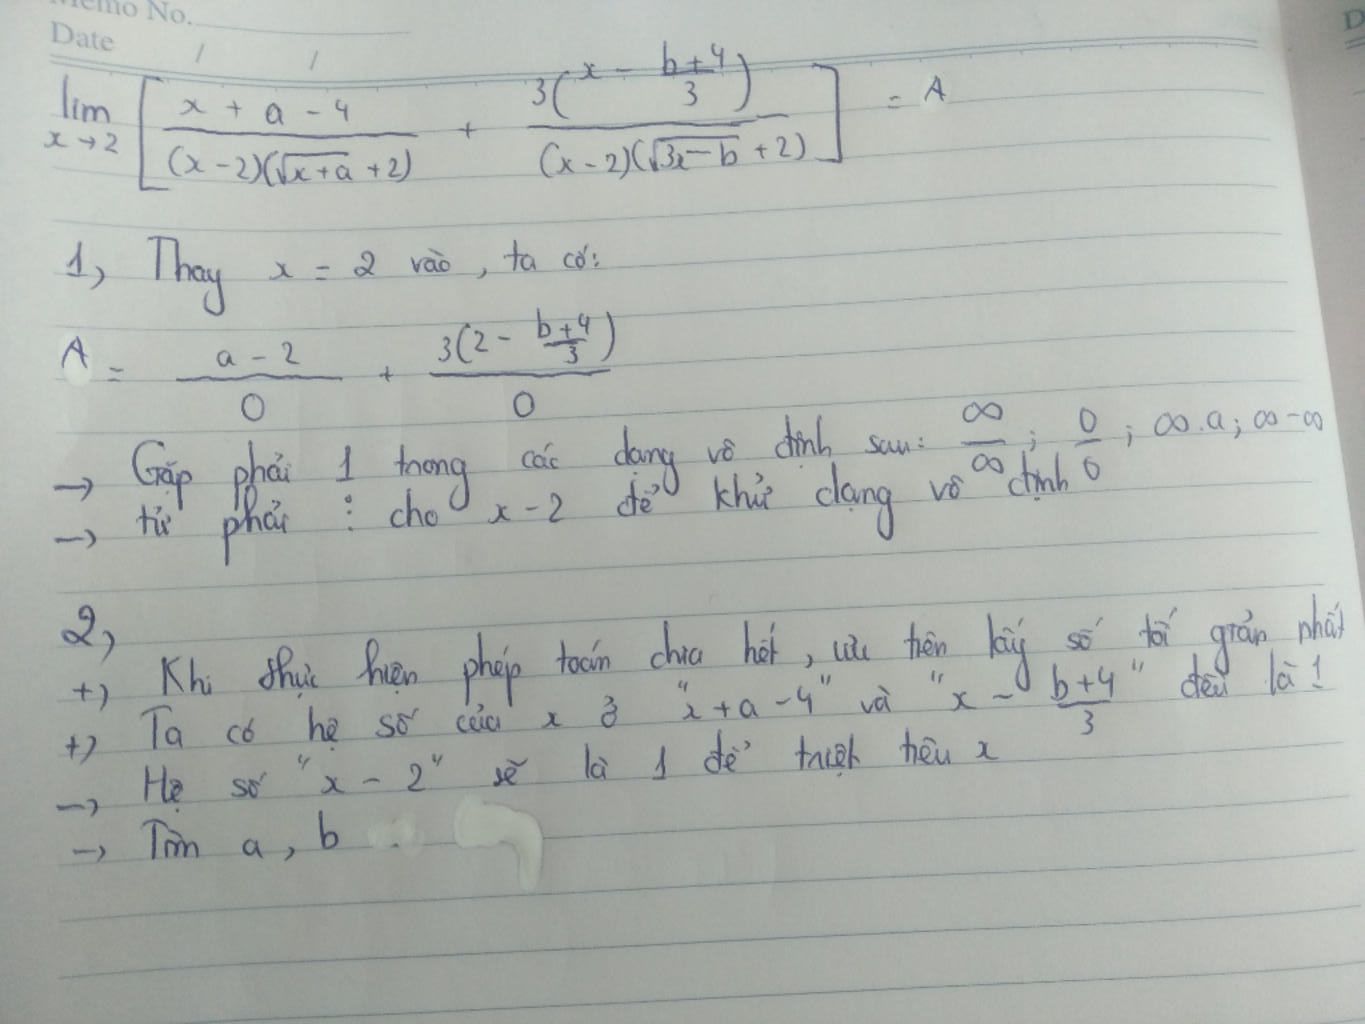 Memo No.
Date / /
lim x→2 [ (x + a - 4)/((x-2)(√(x+a) + 2)) + 3(x - (b+4)/3)/((x-2)(√(3x-b) + 2)) ] = A
1, Thay x = 2 vào, ta có:
A = (a-2)/0 + 3(2 - (b+4)/3)/0
→ Gặp phải 1 trong các dạng vô định sau: ∞/∞ ; 0/0 ; ∞.a ; ∞-∞
→ tử phải ⋮ cho x-2 để khử dạng vô định
2,
+) Khi thực hiện phép toán chia hết, ưu tiên lấy số tối giản nhất
+) Ta có hệ số của x ở "x+a-4" và "x - (b+4)/3" đều là 1
→ Hệ số "x-2" sẽ là 1 để triệt tiêu x
→ Tìm a, b
D